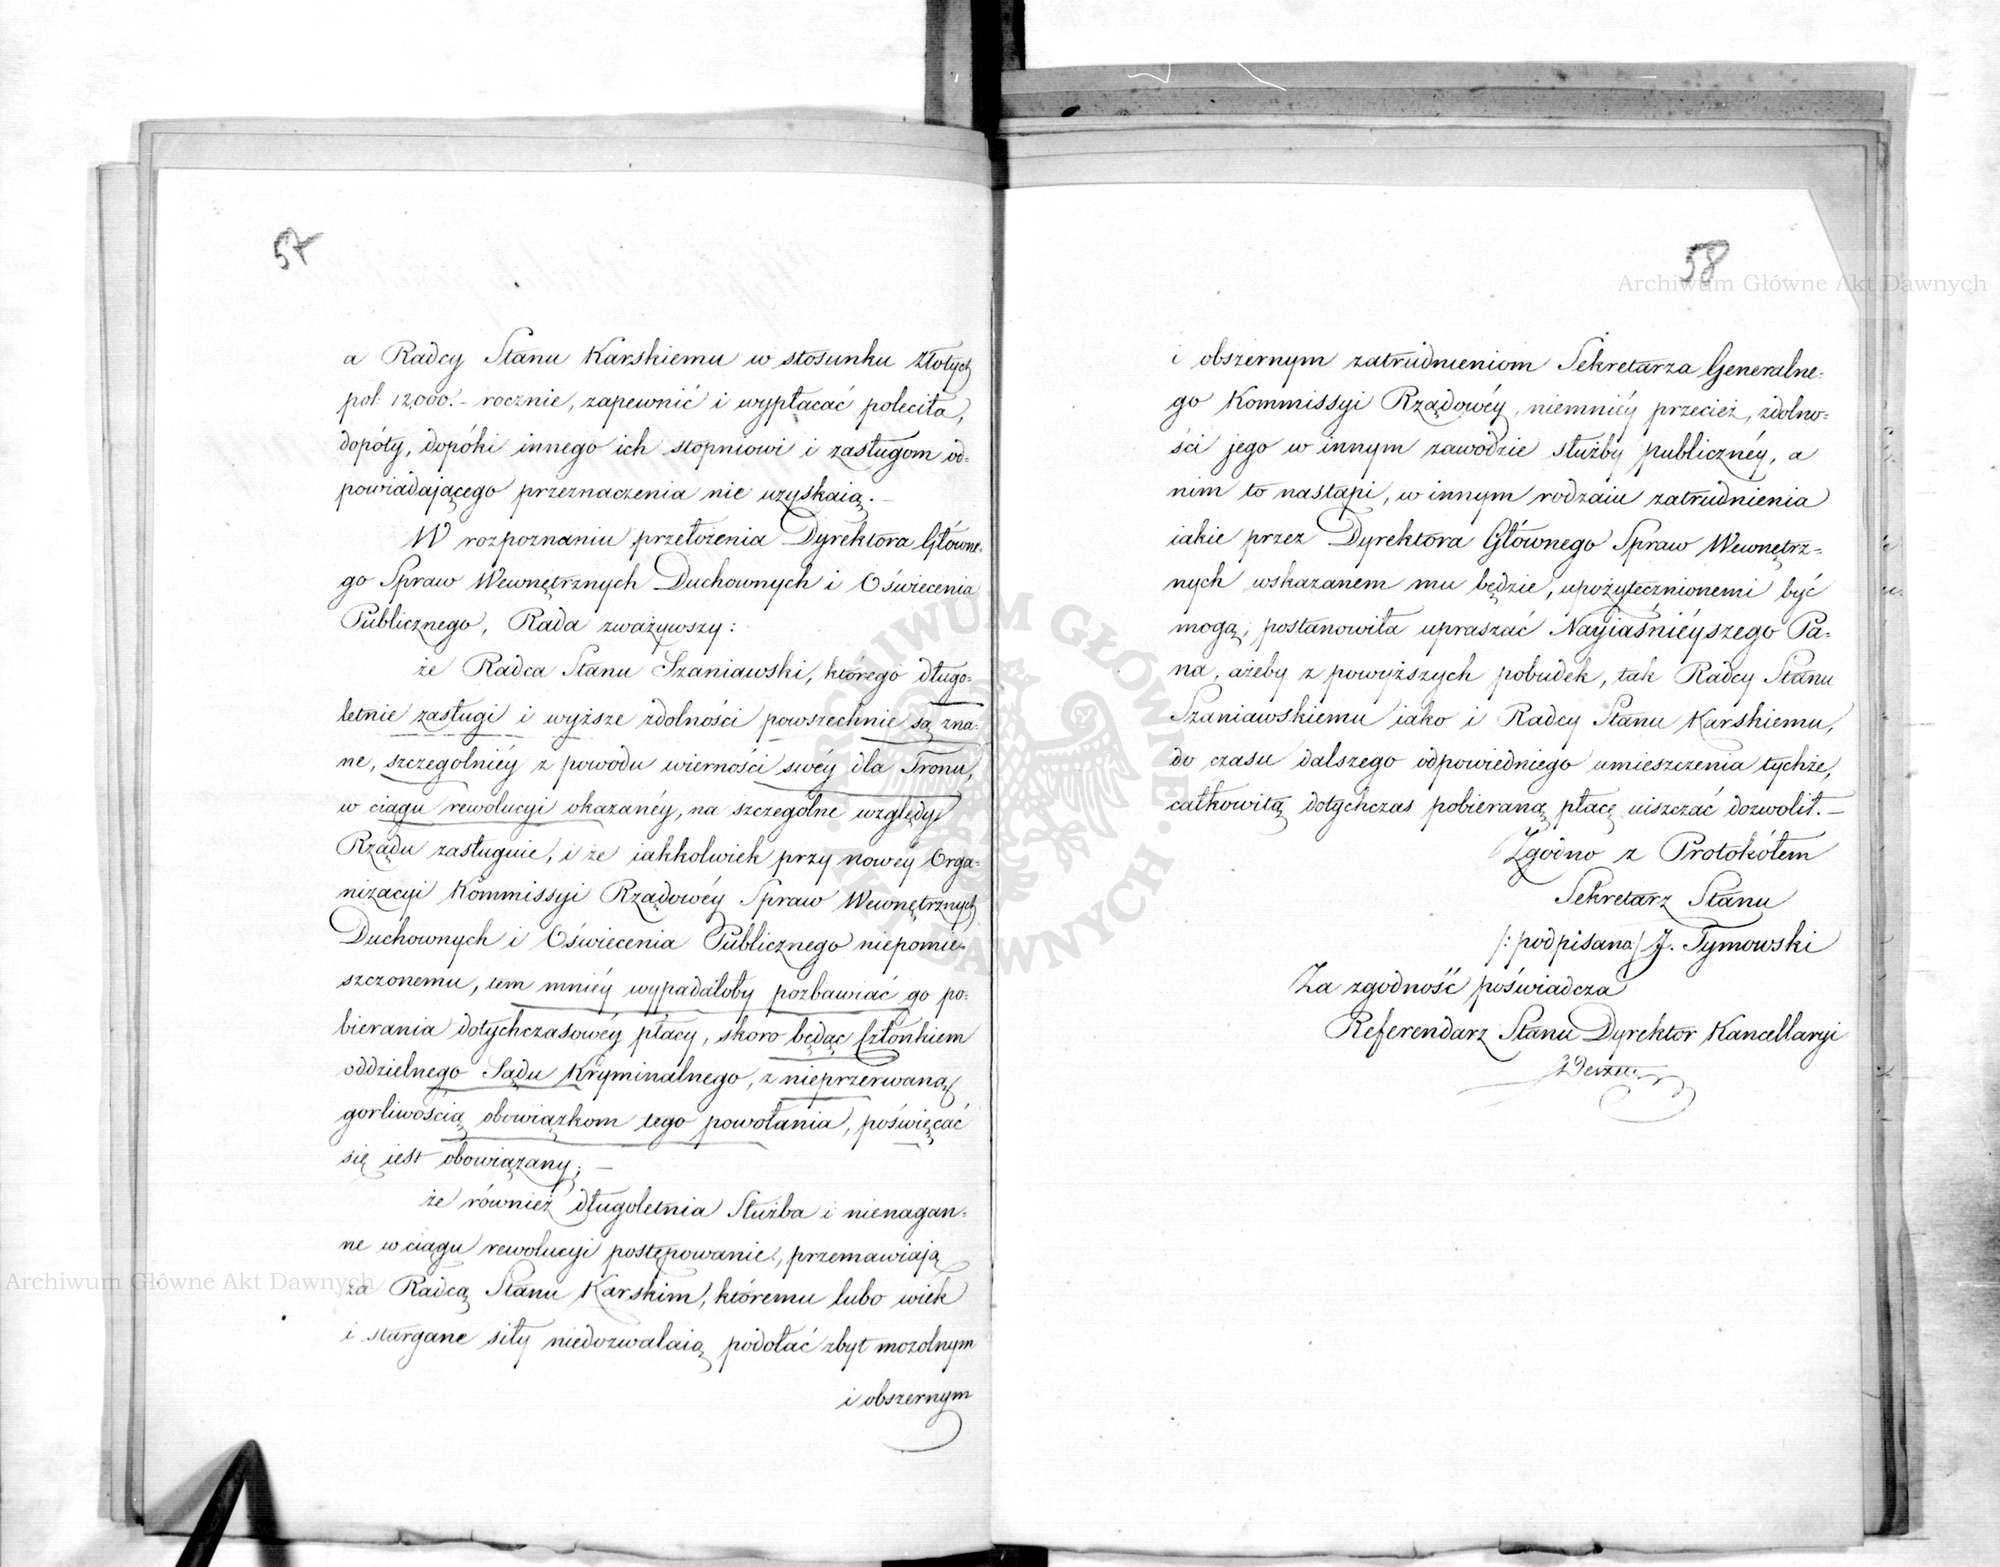 57
a Radcy Stanu Karskiemu w stosunku Złotych
pol: 12,000.- rocznie, zapewnić i wypłacać poleciła,
dopóty, dopóki innego ich stopniowi i zasługom od=
powiadającego przeznaczenia nie uzyskaią. -
W rozpoznaniu przełożenia Dyrektora Główne=
go Spraw Wewnętrznych Duchownych i Oświecenia
Publicznego, Rada zważywszy:
że Radca Stanu Szaniawski, którego długo=
letnie zasługi i wyższe zdolności powszechnie są zna=
ne, szczególniéy z powodu wierności swéy dla Tronu,
w ciągu rewolucyi okazanéy, na szczególne względy
Rządu zasługuie, i że iakkolwiek przy nowéy Orga=
nizacyi Kommissyi Rządowéy Spraw Wewnętrznych
Duchownych i Oświecenia Publicznego niepomie=
szczonemu, tem mniéy wypadałoby pozbawiać go po=
bierania dotychczasowéy płacy, skoro będąc Członkiem
oddzielnego Sądu Kryminalnego, z nieprzerwaną
gorliwością obowiązkom tego powołania, poświęcać
się iest obowiązany; -
że również długoletnia Służba i nienagan=
ne w ciągu rewolucyi postępowanie, przemawiają
za Radcą Stanu Karskim, któremu lubo wiek
i stargane siły niedozwalaią podołać zbyt mozolnym
i obszernym
58
i obszernym zatrudnieniom Sekretarza Generalne=
go Kommissyi Rządowéy, niemniéy przecież, zdolno=
ści jego w innym zawodzie służby publicznéy, a
nim to nastąpi, w innym rodzaiu zatrudnienia
iakie przez Dyrektora Głównego Spraw Wewnętrz=
nych wskazanem mu będzie, upożytecznionemi być
mogą, postanowiła upraszać Nayiaśnieyszego Pa=
na, ażeby z powyższych pobudek, tak Radcy Stanu
Szaniawskiemu iako i Radcy Stanu Karskiemu,
do czasu dalszego odpowiedniego umieszczenia tychże,
całkowitą dotychczas pobieraną płacę uiszczać dozwolił. -
Zgodno z Protokółem
Sekretarz Stanu
/: podpisano/ J. Tymowski
Za zgodność poświadcza
Referendarz Stanu Dyrektor Kancellaryi
Archiwum Główne Akt Dawnych
Archiwum Główne Akt Dawnych
ARCHIWUM GŁÓWNE AKT DAWNYCH